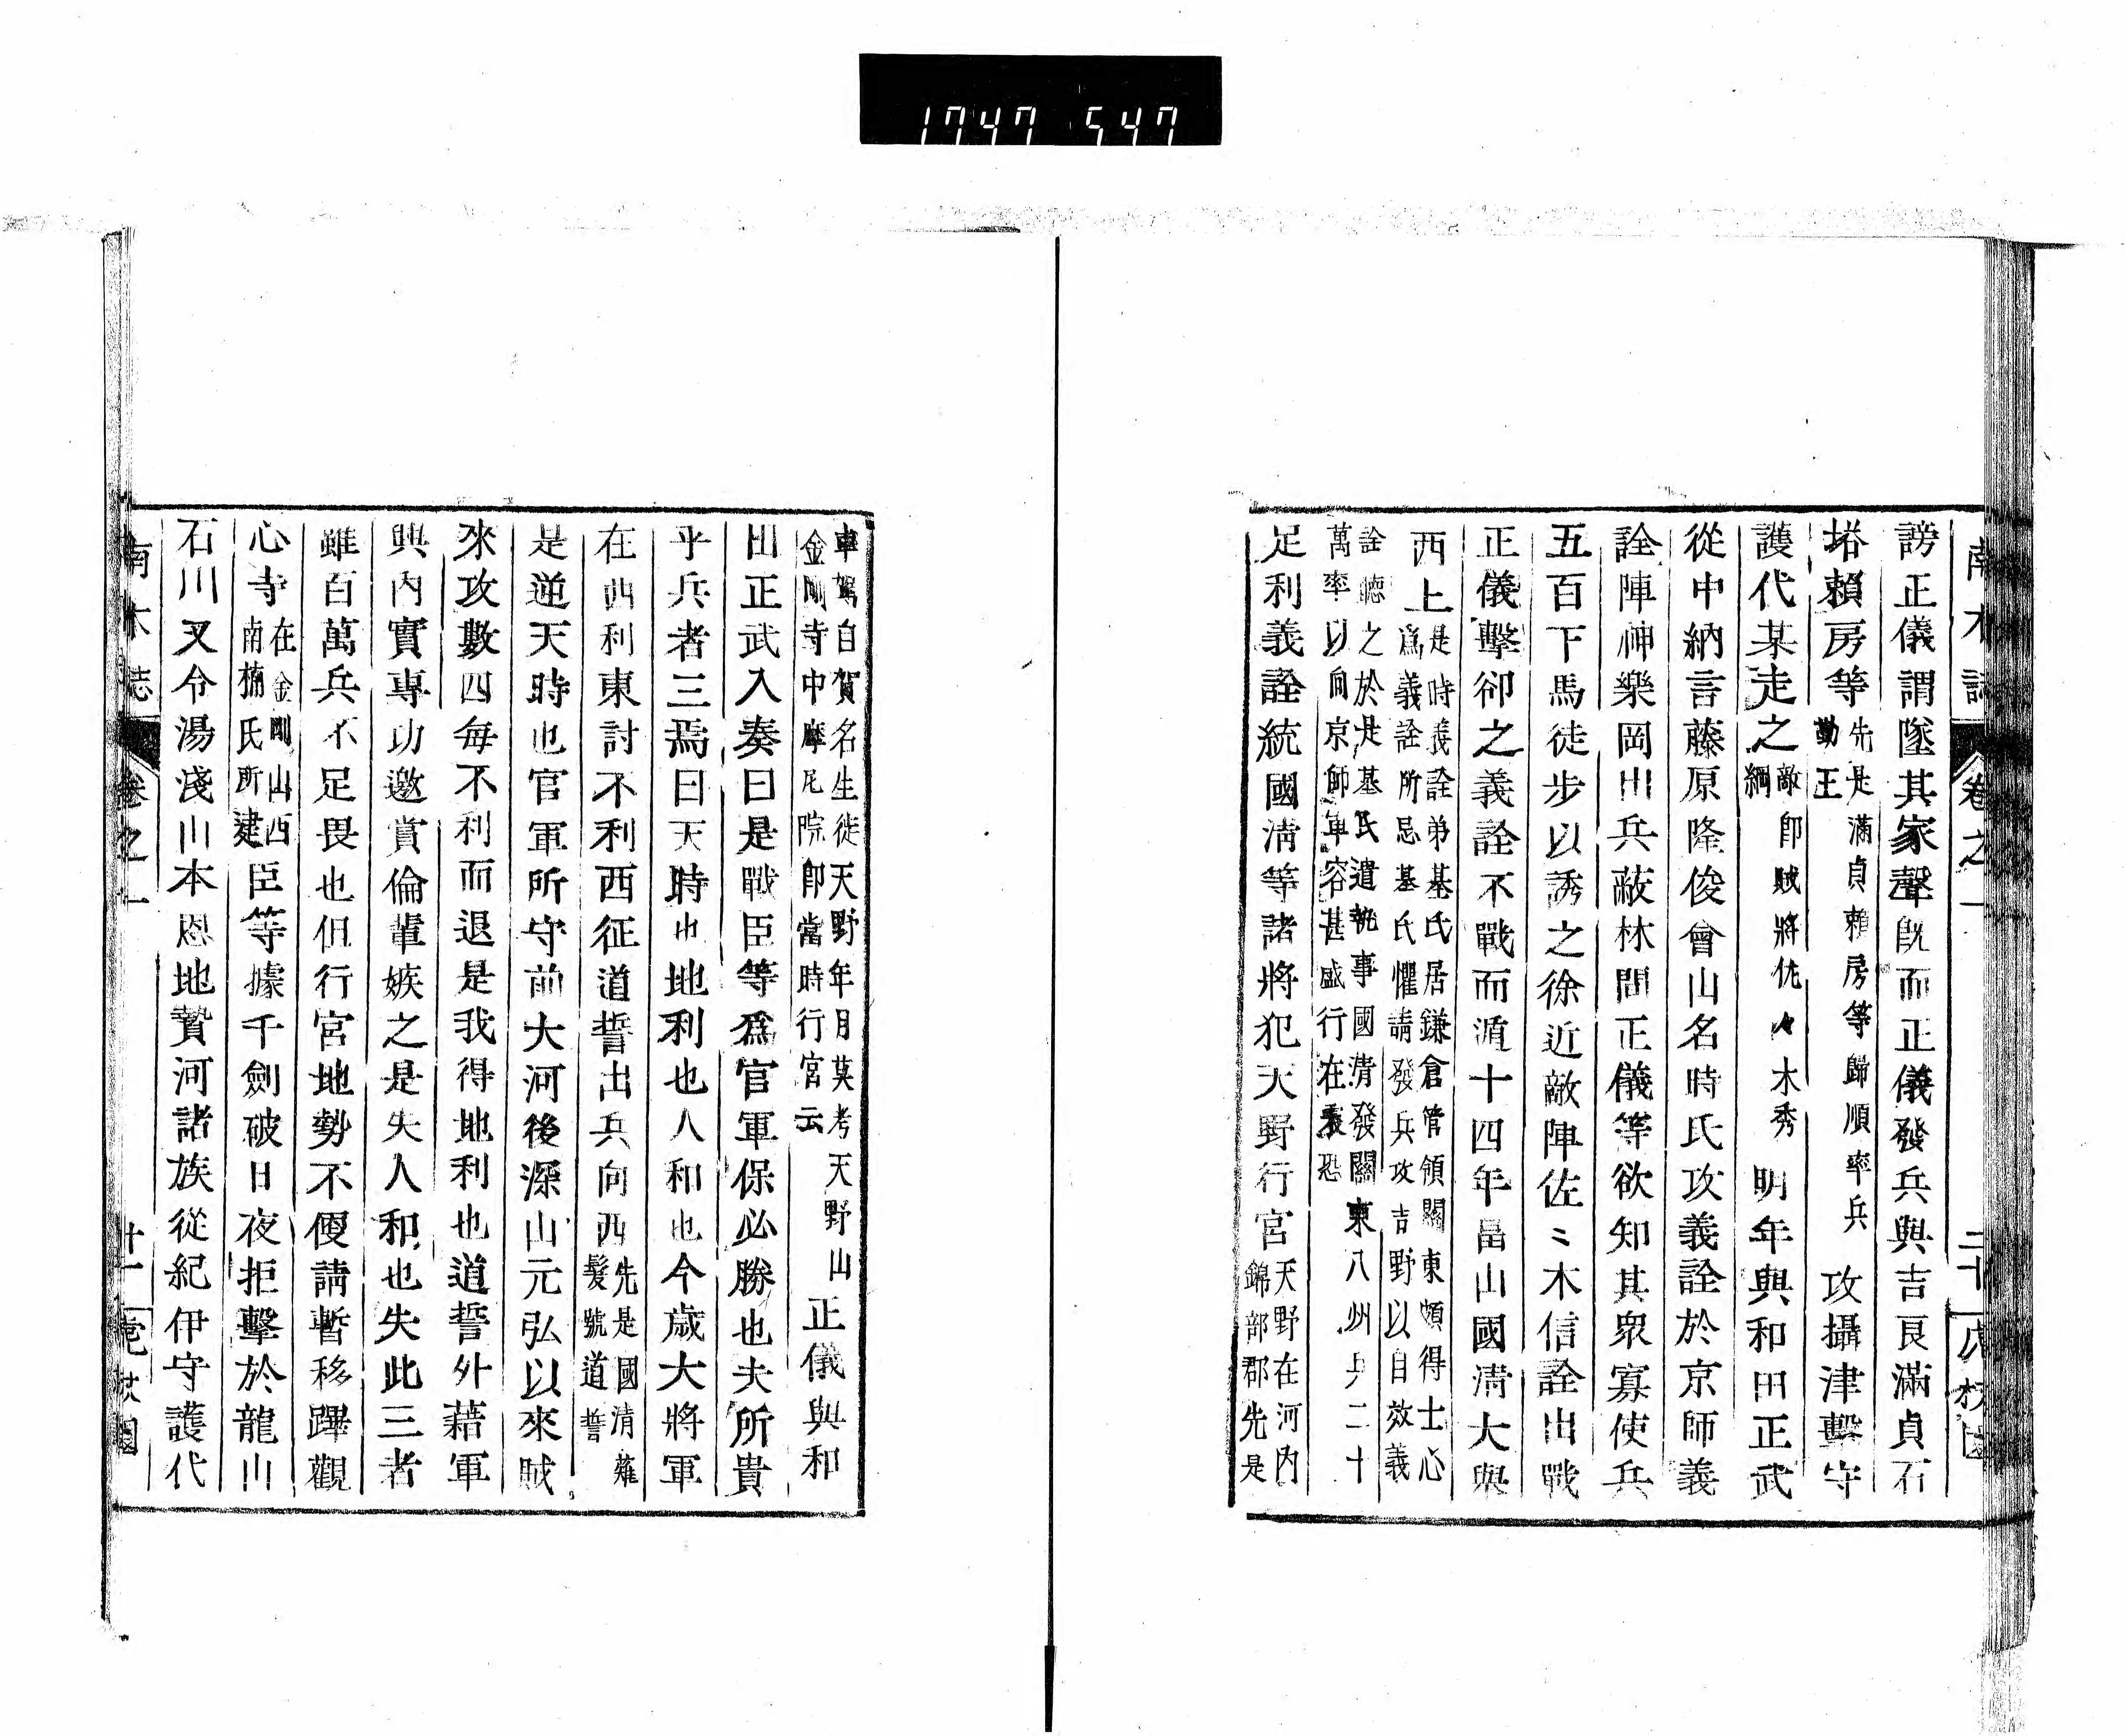 1747 547
南木誌 卷之一 二十
謗正儀謂墜其家聲既而正儀發兵與吉良滿貞石
塔賴房等先是滿貞賴房等歸順率兵
勤王攻攝津擊守
護代某走之敵卽賊將佐々木秀
綱明年與和田正武
從中納言藤原隆俊會山名時氏攻義詮於京師義
詮陣神樂岡出兵蔽林間正儀等欲知其衆寡使兵
五百下馬徒步以誘之徐近敵陣佐〻木信詮出戰
正儀擊卻之義詮不戰而遁十四年畠山國清大與
西上是時義詮弟基氏居鎌倉管領關東頗得士心
爲義詮所忌基氏懼請發兵攻吉野以自效義
詮聽之於是基氏遣執事國清發關東八州兵二十
萬率以向京師軍容甚盛行在震恐
足利義詮統國清等諸將犯天野行宮天野在河內
錦部郡先是
車駕自賀名生徙天野年月莫考天野山
金剛寺中摩尼院卽當時行宮云正儀與和
田正武入奏曰是戰臣等爲官軍保必勝也夫所貴
乎兵者三焉曰天時也地利也人和也今歲大將軍
在西利東討不利西征道誓出兵向西先是國清薙
髮號道誓
是逆天時也官軍所守前大河後深山元弘以來賊
來攻數四每不利而退是我得地利也道誓外藉軍
興內實專功邀賞倫輩嫉之是失人和也失此三者
雖百萬兵不足畏也但行宮地勢不便請暫移蹕觀
心寺在金剛山西
南楠氏所建臣等據千劍破日夜拒擊於龍山
石川又令湯淺山本恩地贄河諸族從紀伊守護代
南木誌 卷之一 廿一